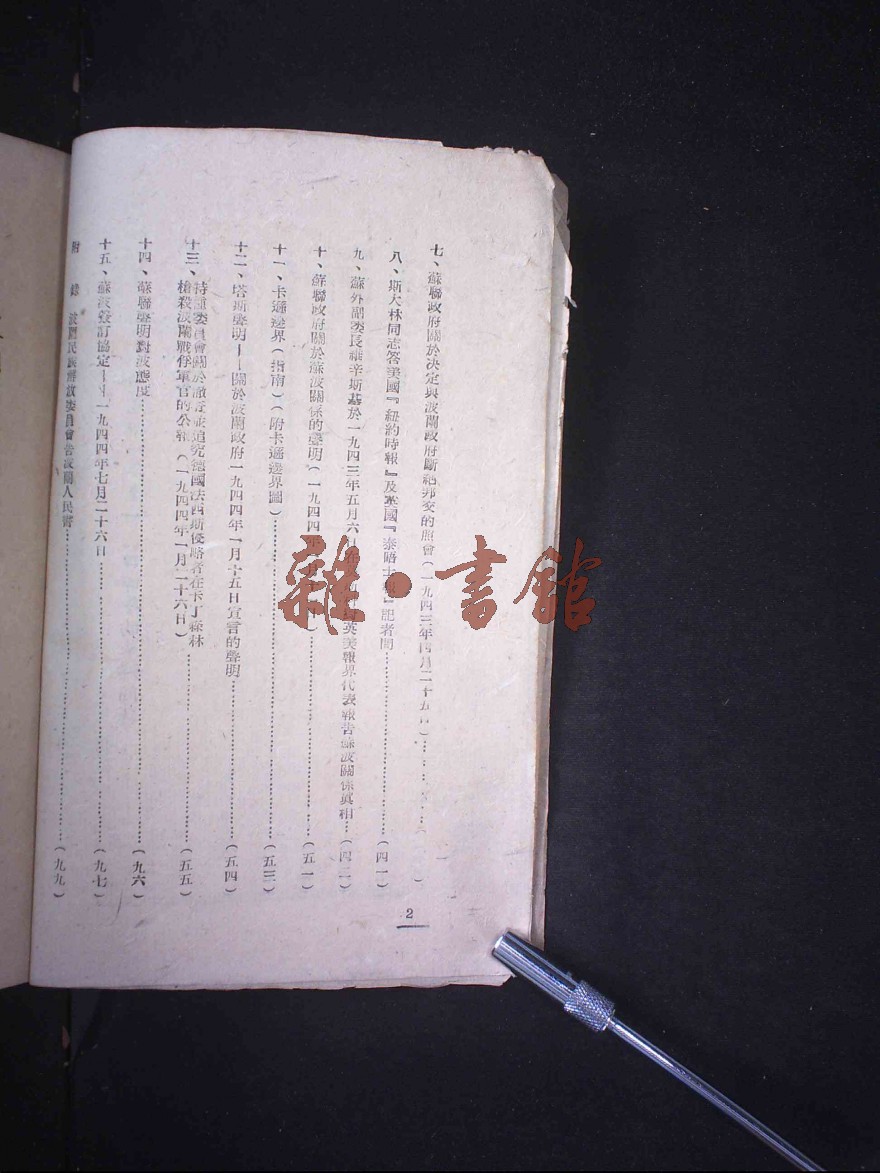 七、蘇聯政府關於决定與波蘭政府斷絕邦交的照會(一九四三年四月二十五日)
八、斯大林同志答美國『紐約時報』及英國『泰晤士報』記者問(四一)
九、蘇外部委長維辛斯基於一九四三年五月六日 英美報界代表報告蘇波關係真相(四二)
十、蘇聯政府關於蘇波關係的聲明(一九四四年 )(五一)
十一、卡遜邊界(指南)(附卡遜邊界圖)(五三)
十二、塔斯聲明——關於波蘭政府一九四四年一月十五日宣言的聲明(五四)
十三、特種委員會關於澈查並追究德國法西斯侵略者在卡丁森林
槍殺波蘭戰俘軍官的公報(一九四四年一月二十六日)(五五)
十四、蘇聯聲明對波態度(九六)
十五、蘇波簽訂協定——一九四四年七月二十六日(九七)
附錄 波蘭民族解放委員會告波蘭人民書(九九)
2
雜·書館